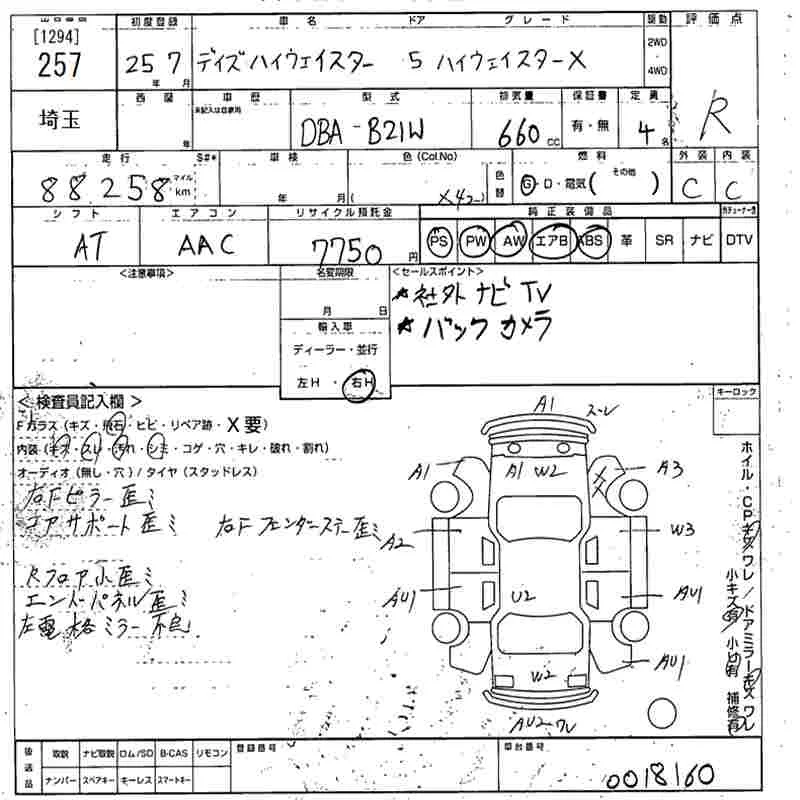 [1294]
257
初度登録
25 7
年 月
車名 ドア グレード
デイズハイウェイスター 5 ハイウェイスターX
駆動
2WD
4WD
評価点
R
埼玉
西暦
年
車歴
未記入は自家用
型式
DBA-B21W
排気量
660
cc
保証書
有・無
定員
4
名
走行 S#*
88258
マイル
km
車検
年 月(
色(Col.No)
色替
燃料
G・D・電気( その他 )
外装 内装
C C
シフト
AT
エアコン
AAC
リサイクル預託金
7750
円
純正装備品
PS PW AW エアB ABS 革 SR ナビ DTV
<注意事項>
名変期限
月 日
輸入車
ディーラー・並行
左H・右H
<セールスポイント>
★社外ナビTV
★バックカメラ
<検査員記入欄>
Fガラス(キズ・飛石・ヒビ・リペア跡・X要)
内装(キズ・スレ・汚れ・シミ・コゲ・穴・キレ・破れ・割れ)
オーディオ(無し・穴)/タイヤ(スタッドレス)
右Fピラー歪ミ
コアサポート歪ミ 右Fフェンダーステー歪ミ
Rフロア小歪ミ
エンドパネル歪ミ
左電格ミラー不良
キーロック
A1
スレ
A1
A1 W2
A3
A2
W3
AU1
U2
AU1
W2
AU1
AU2-ワレ
ホイル・CPキズワレ/ドアミラーキズワレ
小キズ有 小凹有 補修有
後送品
取説 ナビ取説 ロム/SD B-CAS リモコン
ナンバー スペアキー キーレス スマートキー
登録番号
車台番号
0018160